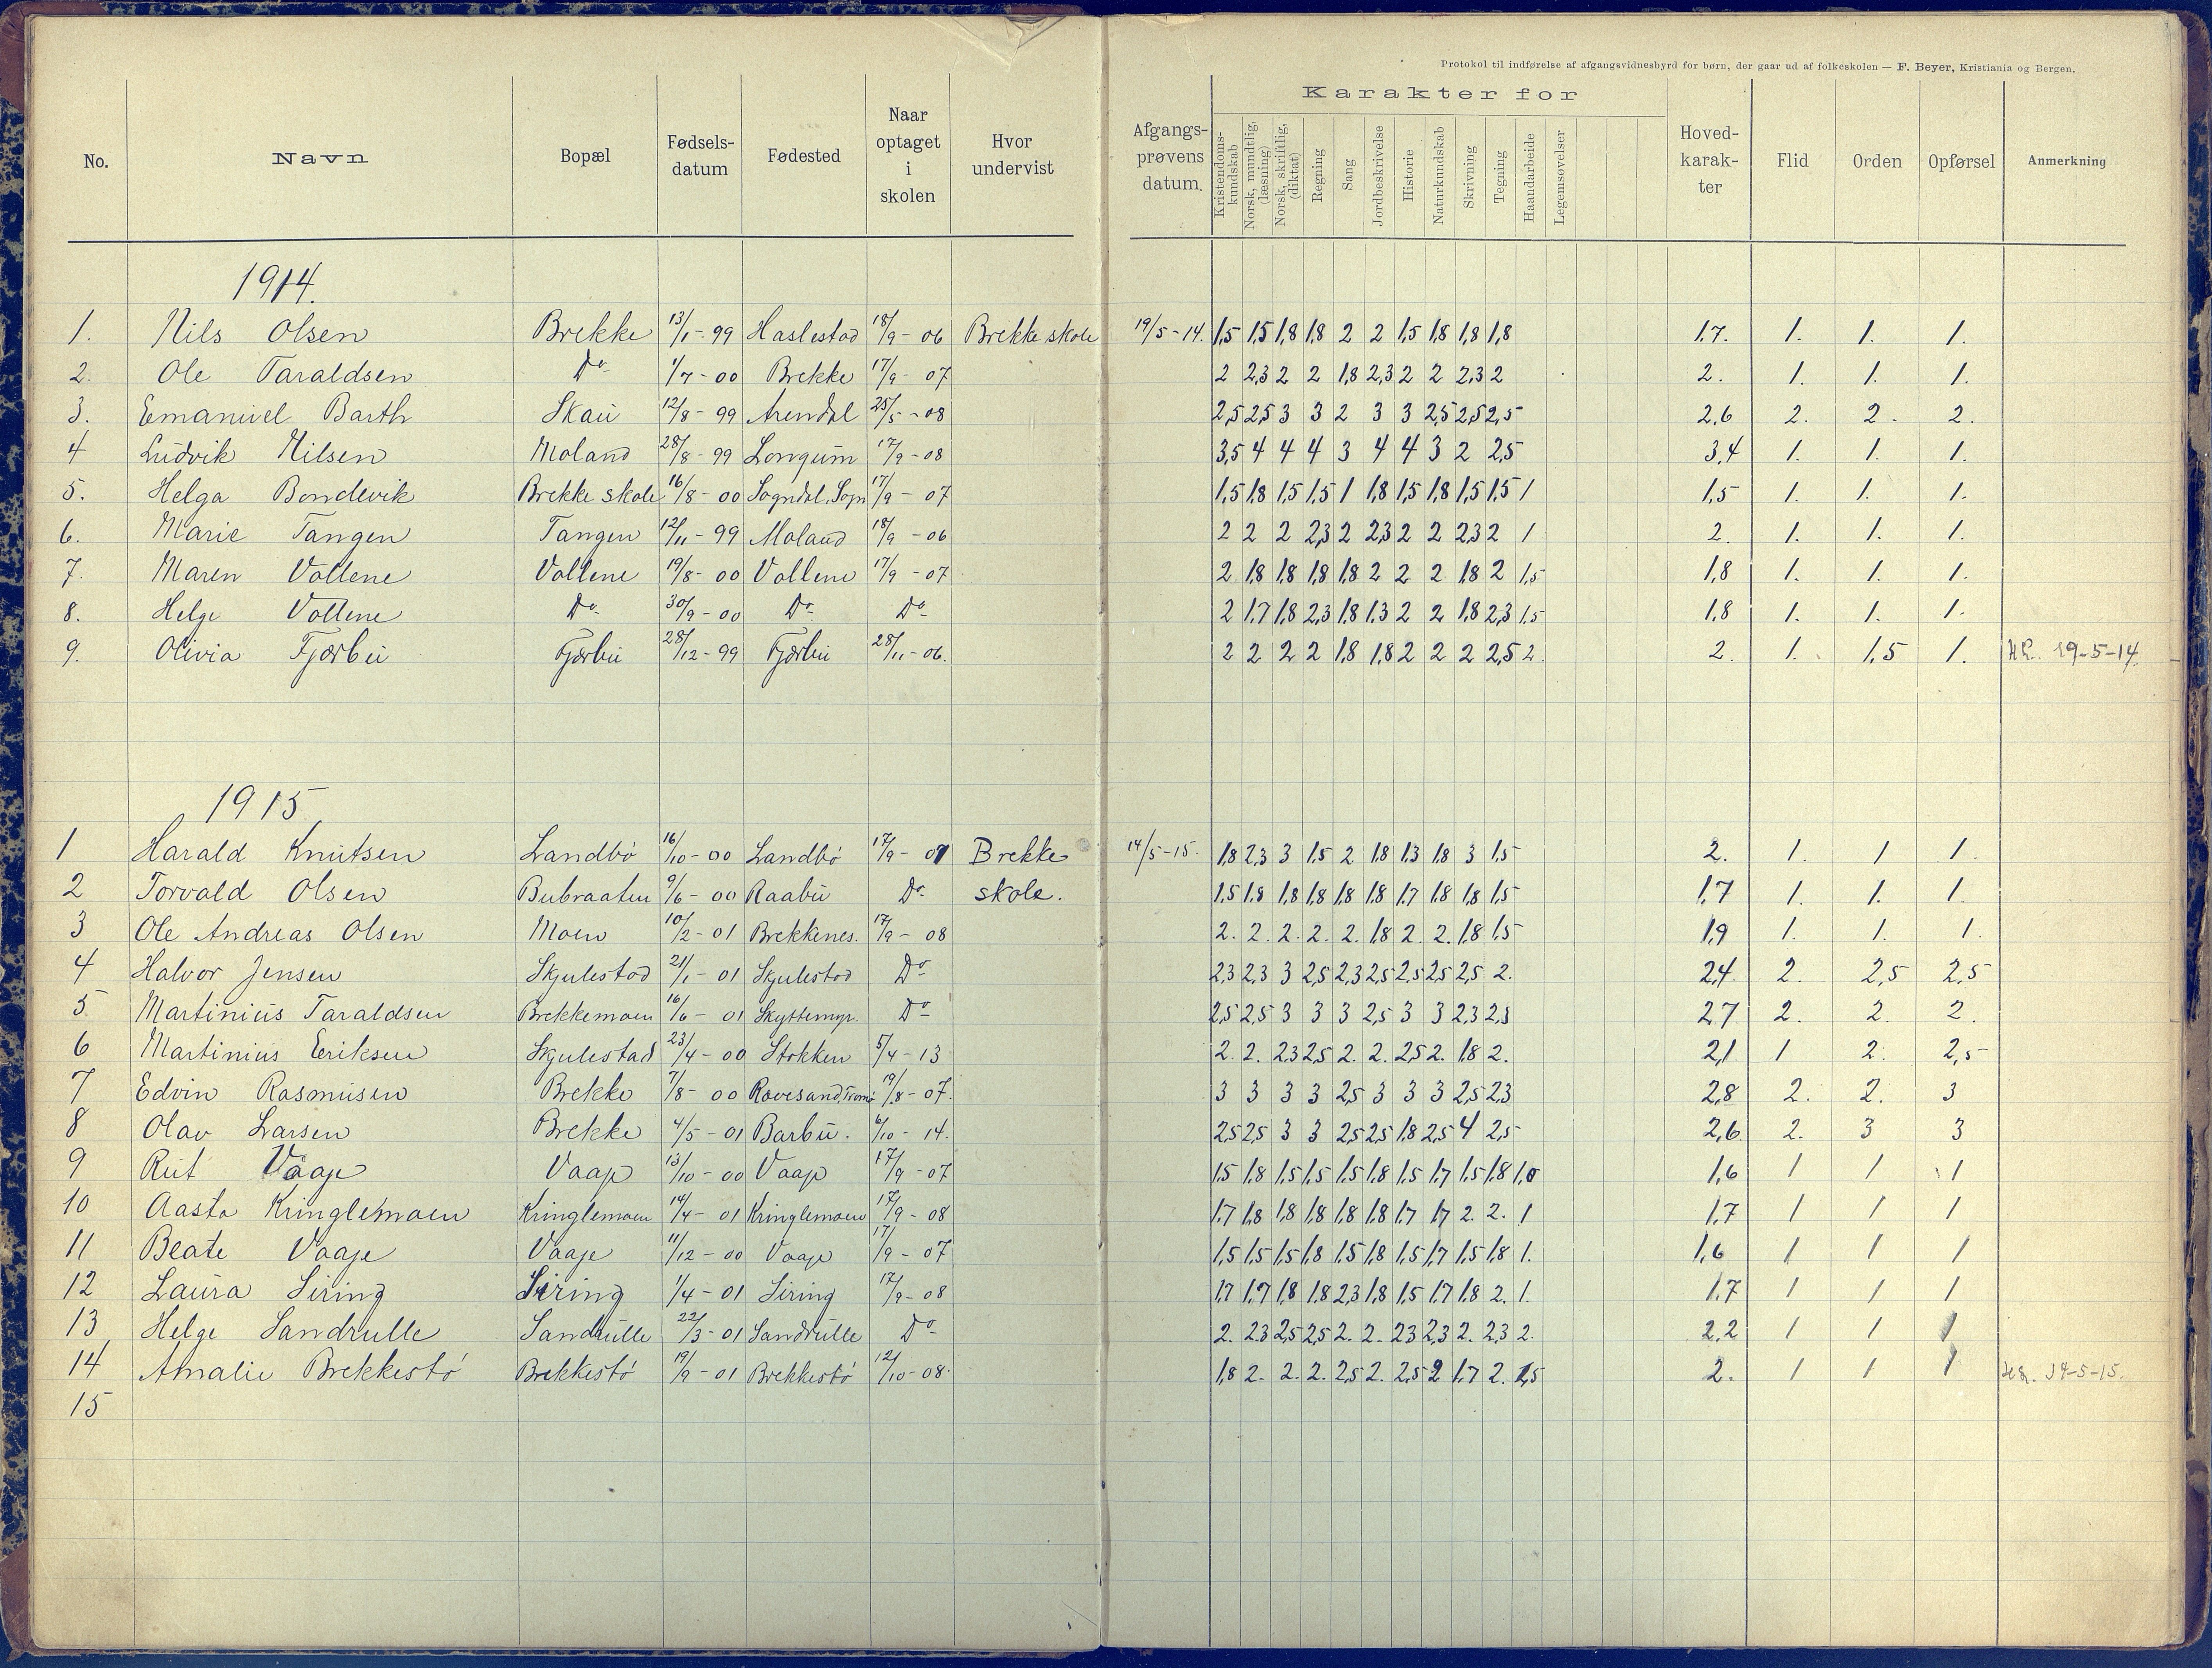 Protokol til indførelse af afgangsvidnesbyrd for børn, der gaar ud af folkeskolen — F. Beyer, Kristiania og Bergen.
No. Navn Bopæl Fødsels-datum Fødested Naar optaget i skolen Hvor undervist Afgangs-prøvens datum. Karakter for Kristendoms-kundskab Norsk, mundtlig, (læsning) Norsk, skriftlig, (diktat) Regning Sang Jordbeskrivelse Historie Naturkundskab Skrivning Tegning Haandarbeide Legemsøvelser Hoved-karak-ter Flid Orden Opførsel Anmerkning
1914.
1. Nils Olsen Brekke 13/1-99 Haslestad 18/9-06 Brekke skole 19/5-14. 1,5 1,5 1,8 1,8 2 2 1,5 1,8 1,8 1,8 1.7. 1. 1. 1.
2. Ole Taraldsen Do 1/7-00 Brekke 17/9-07 2 2,3 2 2 1,8 2,3 2 2 2,3 2 2. 1. 1. 1.
3. Emanuel Barth Skau 12/8-99 Arendal 25/5-08 2,5 2,5 3 3 2 3 3 2,5 2,5 2,5 2,6 2. 2. 2.
4 Ludvik Nilsen Moland 28/8-99 Longum 17/9-08 3,5 4 4 4 3 4 4 3 2 2,5 3,4 1. 1. 1.
5. Helga Bondevik Brekke skole 16/8-00 Sogndal, Sogn 17/9-07 1,5 1,8 1,5 1,5 1 1,8 1,5 1,8 1,5 1,5 1 1,5 1. 1. 1.
6. Marie Tangen Tangen 12/11-99 Moland 18/9-06 2 2 2 2,3 2 2,3 2 2 2,3 2 1 2. 1. 1. 1.
7. Maren Vollene Vollene 19/8-00 Vollene 17/9-07 2 1,8 1,8 1,8 1,8 2 2 2 1,8 2 1,5 1,8 1. 1. 1.
8. Helge Vollene Do 30/9-00 Do Do 2 1,7 1,8 2,3 1,8 1,3 2 2 1,8 2,3 1,5 1,8 1. 1. 1.
9. Olivia Fjærbu Fjærbu 28/12-99 Fjærbu 28/11-06. 2 2 2 2 1,8 1,8 2 2 2 2,5 2 2. 1. 1,5 1. 19-5-14.
1915
1 Harald Knutsen Landbö 16/10-00 Landbö 17/9-07 Brekke 14/5-15. 1,8 2,3 3 1,5 2 1,8 1,3 1,8 3 1,5 2. 1. 1 1.
2 Torvald Olsen Bubraaten 9/6-00 Raabu Do skole. 1,5 1,8 1,8 1,8 1,8 1,8 1,7 1,8 1,8 1,5 1,7 1. 1. 1.
3 Ole Andreas Olsen Moen 10/2-01 Brekkenes. 17/9-08 2. 2. 2. 2. 2. 1,8 2. 2. 1,8 1,5 1,9 1. 1. 1.
4 Halvor Jensen Skjulestad 21/1-01 Skjulestad Do 2,3 2,3 3 2,5 2,3 2,5 2,5 2,5 2,5 2. 2,4 2. 2,5 2,5
5 Martinius Taraldsen Brekkemoen 16/6-01 Skyttemyr. Do 2,5 2,5 3 3 3 2,5 3 3 2,3 2,3 2,7 2. 2. 2.
6 Martinius Eriksen Skjulestad 23/4-00 Stokken 5/4-13 2. 2. 2,3 2,5 2. 2. 2,5 2. 1,8 2. 2,1 1 2. 2,5
7 Edvin Rasmusen Brekke 7/8-00 Ravesand, Tromö 19/8-07. 3 3 3 3 2,5 3 3 3 2,5 2,3 2,8 2. 2. 3
8 Olav Larsen Brekke 4/5-01 Barbu. 6/10-14. 2,5 2,5 3 3 2,5 2,5 1,8 2,5 4 2,5 2,6 2. 3 3
9 Rut Vaaje Vaaje 13/10-00 Vaaje 17/9-07 1,5 1,8 1,5 1,5 1,5 1,8 1,5 1,7 1,5 1,8 1,0 1,6 1 1 1
10 Aasta Kringlemoen Kringlemoen 14/4-01 Kringlemoen 17/9-08 1,7 1,8 1,8 1,8 1,8 1,8 1,7 1,7 2. 2. 1 1,7 1 1 1
11 Beate Vaaje Vaaje 11/12-00 Vaaje 17/9-07 1,5 1,5 1,5 1,8 1,5 1,8 1,5 1,7 1,5 1,8 1. 1,6 1 1 1
12 Laura Siring Siring 1/4-01 Siring 17/9-08 1,7 1,7 1,8 1,8 2,3 1,8 1,5 1,7 1,8 2. 1. 1,7 1 1 1
13 Helge Sandrulle Sandrulle 22/3-01 Sandrulle Do 2. 2,3 2,5 2,5 2. 2. 2,3 2,3 2. 2,3 2. 2,2 1 1 1
14 Amalie Brekkestö Brekkestö 19/9-01 Brekkestö 12/10-08. 1,8 2. 2. 2. 2,5 2. 2,5 2 1,7 2. 1,5 2. 1 1 1 14-5-15.
15